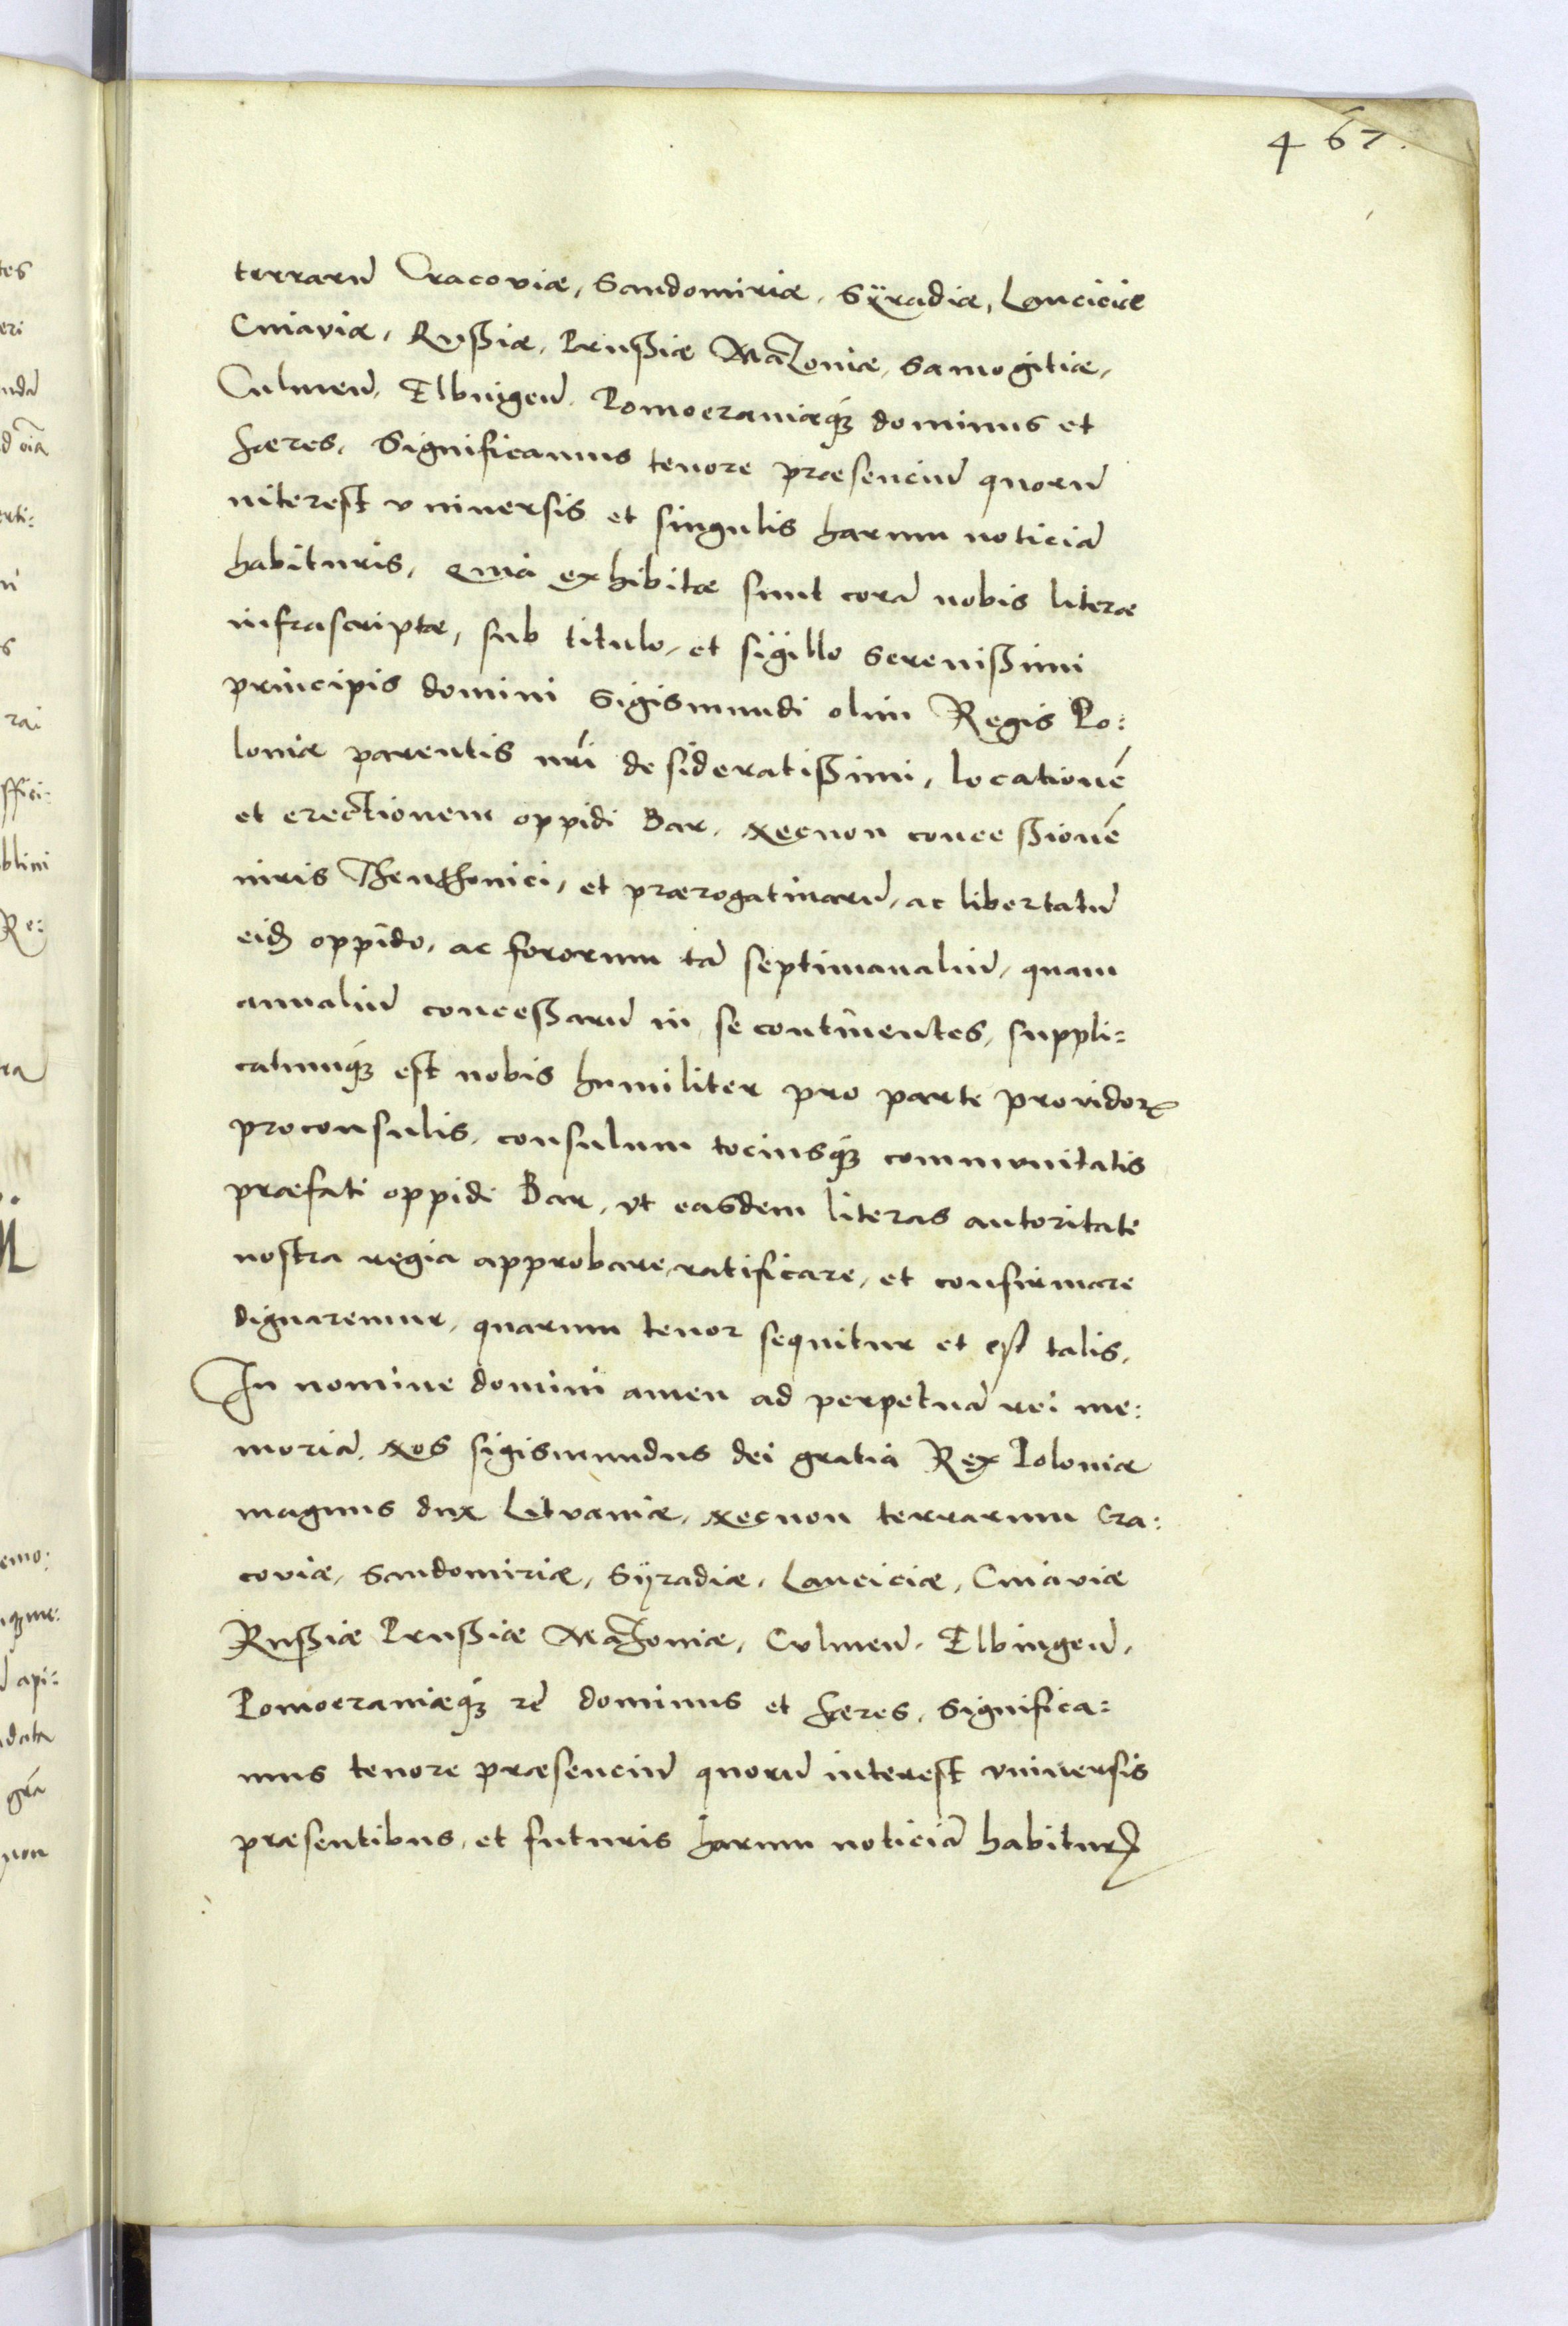 467.
terrarū Cracoviæ, Sandomiriæ, Sÿradiæ, Lanciciæ
Cuiaviæ, Rvßiæ, Prußiæ Mazoviæ, Samogitiæ,
Culmeñ. Elbingeñ. Pomoeraniæq́ꝫ dominus et
hæres. Significamus tenore præsenciū quorū
interest vniuersis et singulis harum noticiā
habituris, Quia exhibitæ sunt corā nobis literæ
infrascriptæ, sub titulo, et sigillo Serenißimi
principis domini Sigismundi olim Regis Po:
loniæ parentis nr̄i desideratißimi, locationē
et erectionem oppidi Bar, Necnon conceßionē
iuris Theuthonici, et prærogatiuarū, ac libertatū
eidē oppido, ac fororum tā septimanaliū, quam
annaliū conceßarū in se continentes, suppli:
catumq́ꝫ est nobis humiliter pro parte providoꝝ
proconsulis, consulum tociusq́ꝫ commvnitatis
præfati oppidi Bar, vt easdem literas autoritate
nostra regia approbare, ratificare, et confirmare
dignaremur, quarum tenor sequitur et est talis,
In nomine domini amen ad perpetuā rei me:
moriā. Nos Sigismundus dei gratia Rex Poloniæ
magnus dux Litvaniæ, Necnon terrarum Cra:
coviæ, Sandomiriæ, Sÿradiæ, Lanciciæ, Cuiaviæ
Rußiæ Prußiæ Mazoviæ, Cvlmeñ. Elbingeñ.
Pomoeraniæq́ꝫ ꝛc̄ dominus et hæres, Significa:
mus tenore præsenciū quorū interest vniuersis
præsentibus, et futuris harum noticiā habiturꝭ
tes
eri
ndā
d oīa
erti:
s
rai
ffici:
blini
Re:
ra
emo:
api:
data
grā
non